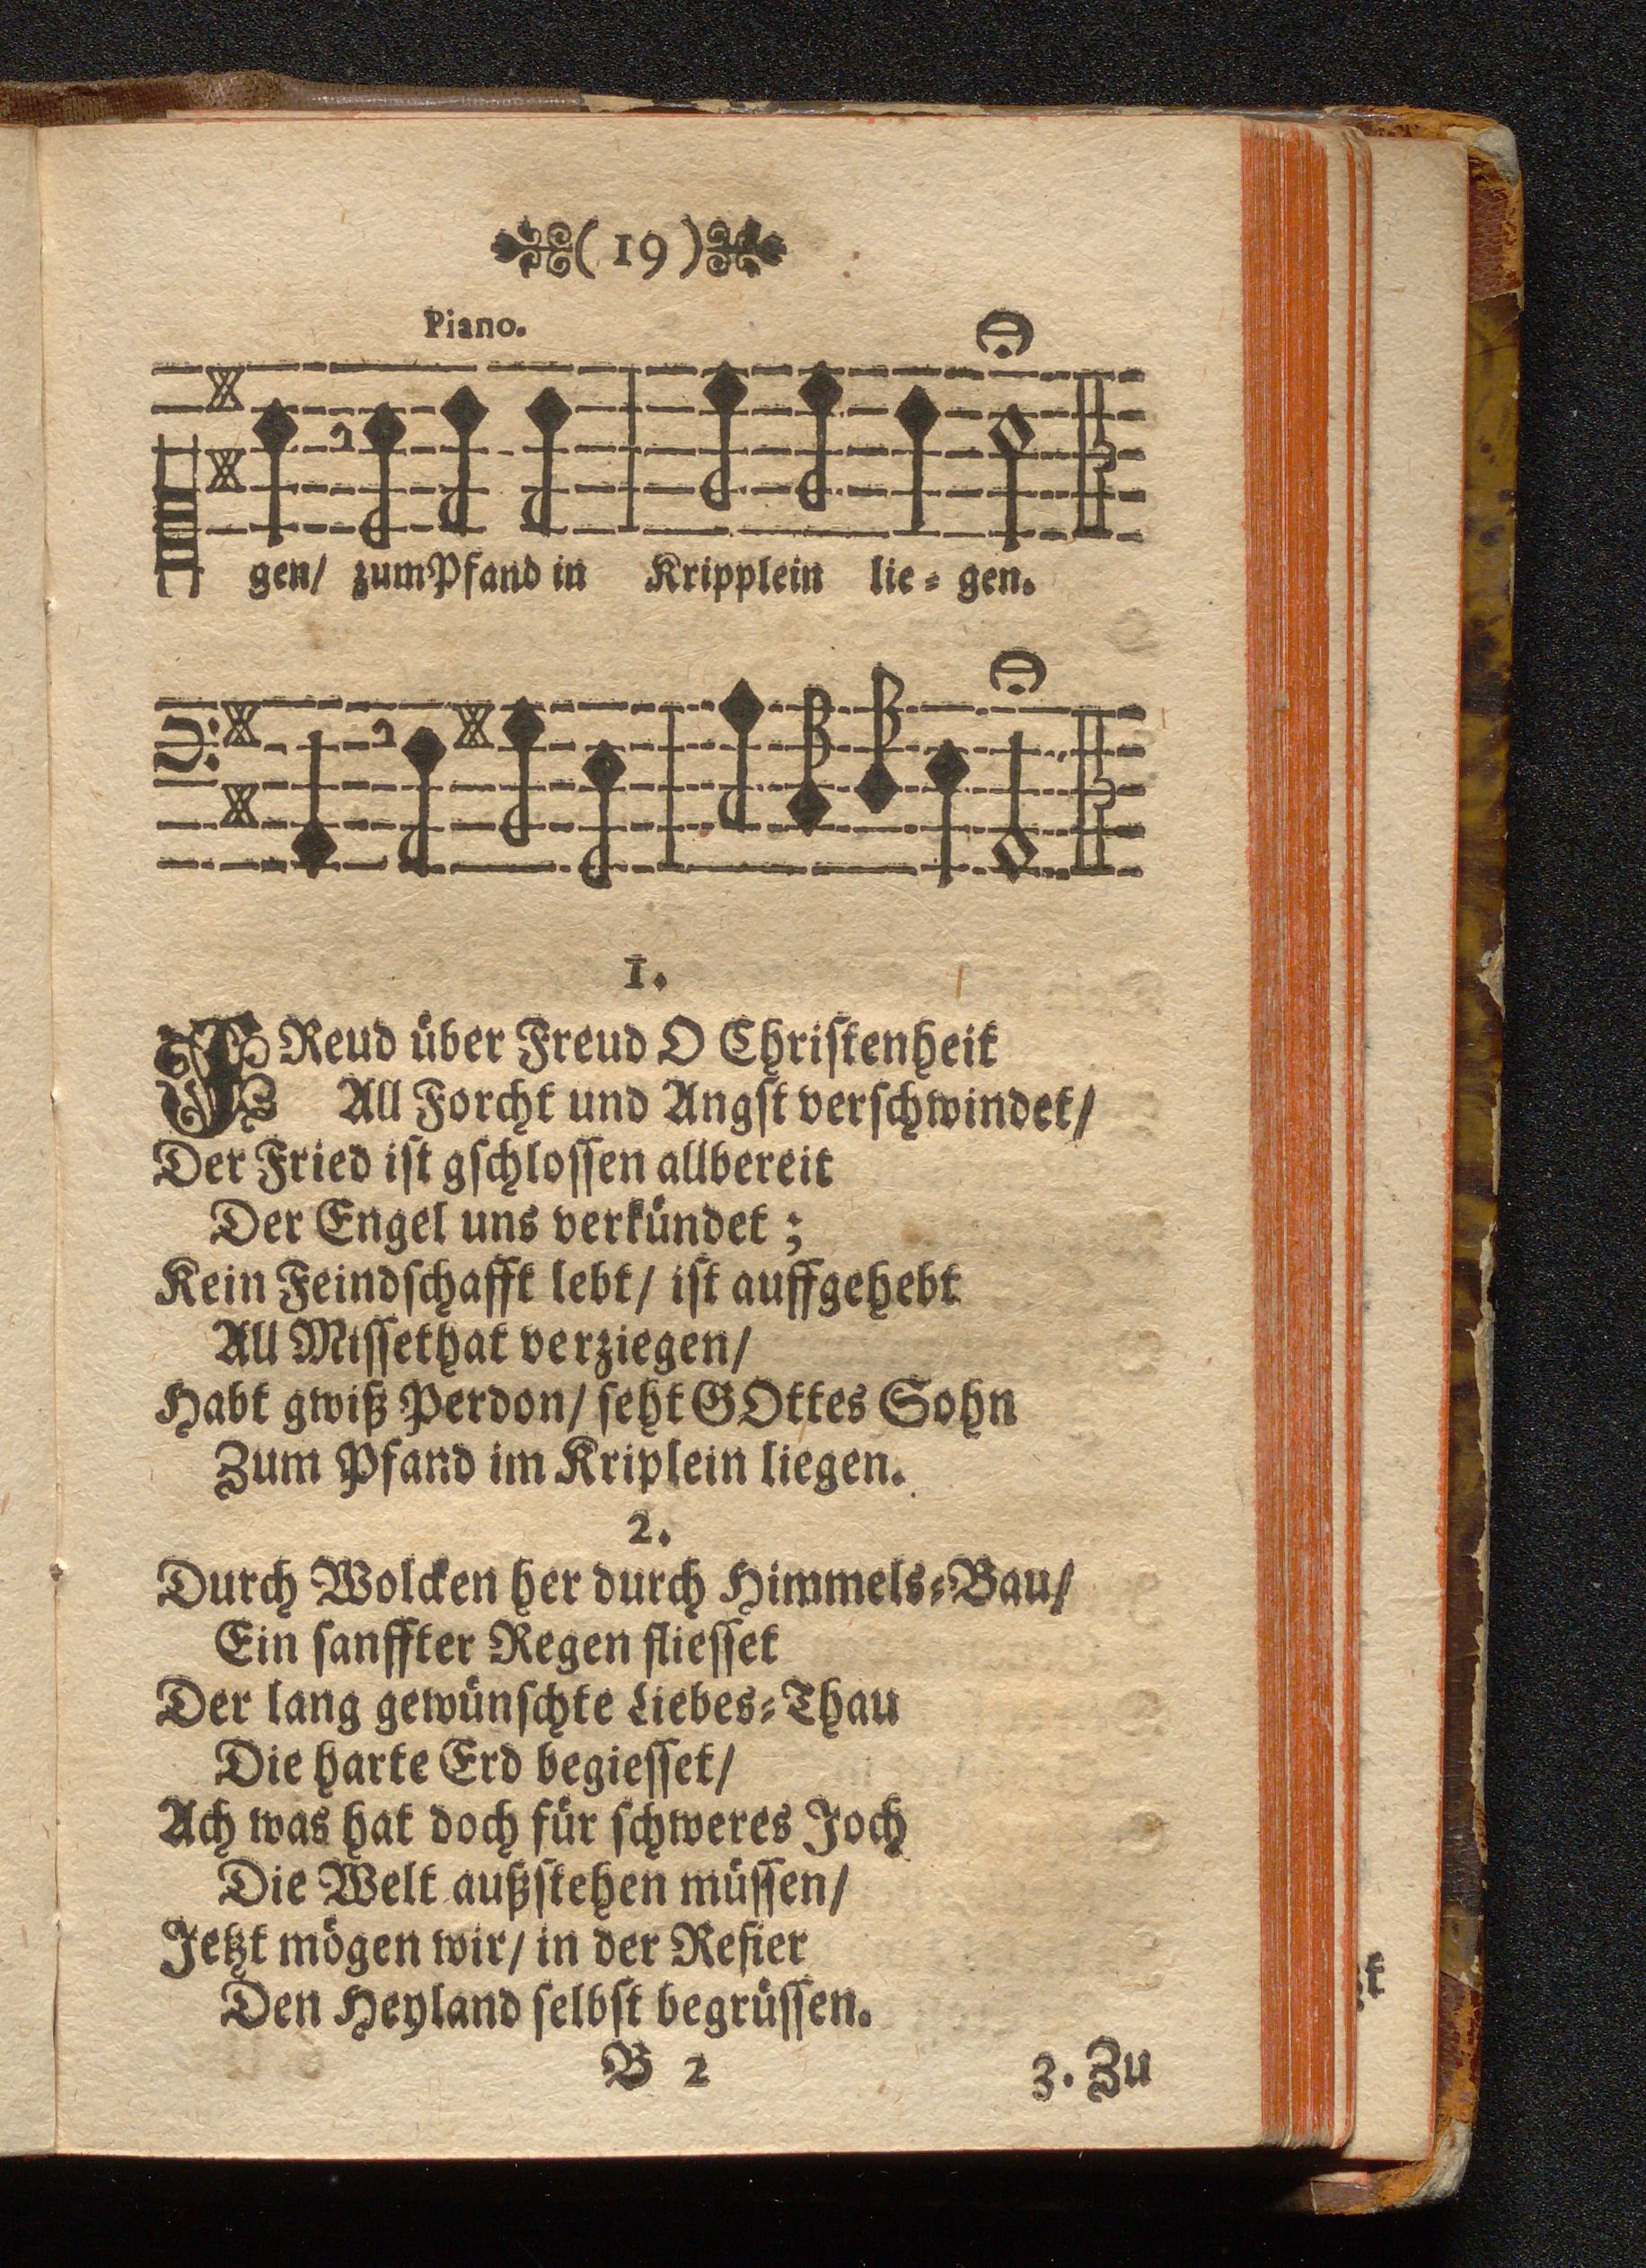 ( 19 )
Piano.
gen/ zum Pfand in Kripplein lie⸗gen.
1.
FReud über Freud O Christenheit
All Forcht und Angst verschwindet/
Der Fried ist gschlossen allbereit
Der Engel uns verkündet ;
Kein Feindschafft lebt/ ist auffgehebt
All Missethat verziegen/
Habt gwiß Perdon/ seht GOttes Sohn
Zum Pfand im Kriplein liegen.
2.
Durch Wolcken her durch Himmels⸗Bau/
Ein sanffter Regen fliesset
Der lang gewünschte Liebes⸗Thau
Die harte Erd begiesset/
Ach was hat doch für schweres Joch
Die Welt außstehen müssen/
Jetzt mögen wir/ in der Refier
Den Heyland selbst begrüssen.
B 2
3. Zu